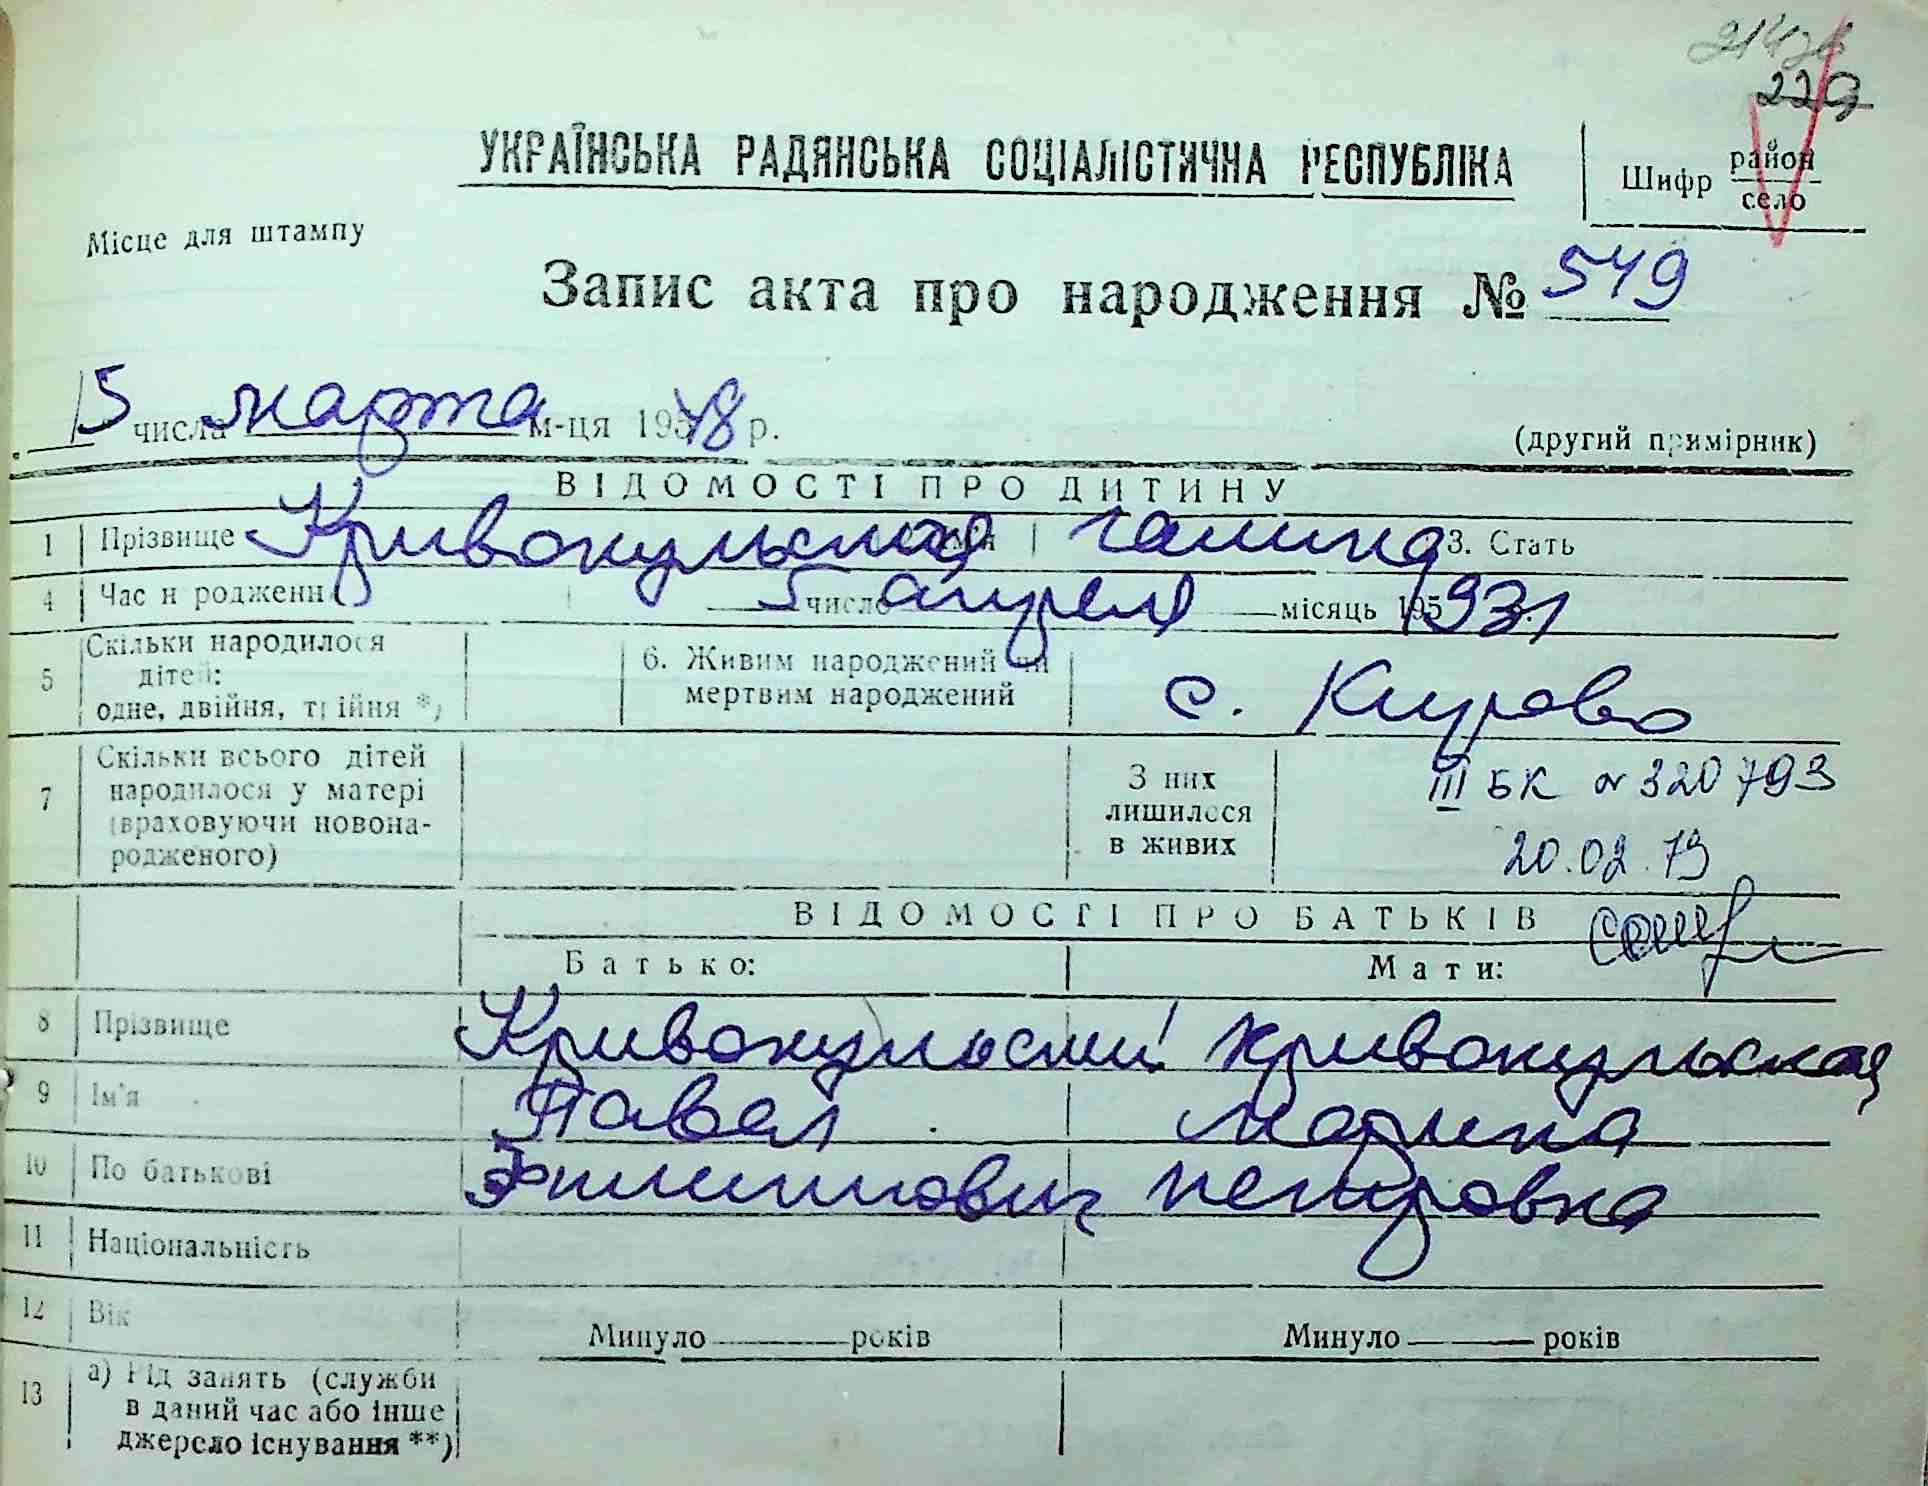 229
УКРАЇНСЬКА РАДЯНСЬКА СОЦІАЛІСТИЧНА РЕСПУБЛІКА
Шифр район
село
Місце для штампу
Запис акта про народження № 549
15 числа марта м-ця 1978 р.
(другий примірник)
ВІДОМОСТІ ПРО ДИТИНУ
1 Прізвище Кривокульская Галина 3. Стать
4 Час народження 5 число апреля місяць 1931
5 Скільки народилося дітей: одне, двійня, трійня *) 6. Живим народжений чи мертвим народжений с. Кирово
7 Скільки всього дітей народилося у матері (враховуючи новонародженого) З них лишилося в живих III БК № 320793
20.02.79
ВІДОМОСТІ ПРО БАТЬКІВ
Батько: Мати:
8 Прізвище Кривокульский Кривокульская
9 Ім'я Павел Марина
10 По батькові Филиппович Петровна
11 Національність
12 Вік Минуло років Минуло років
13 а) Рід занять (служби в даний час або інше джерело існування **)